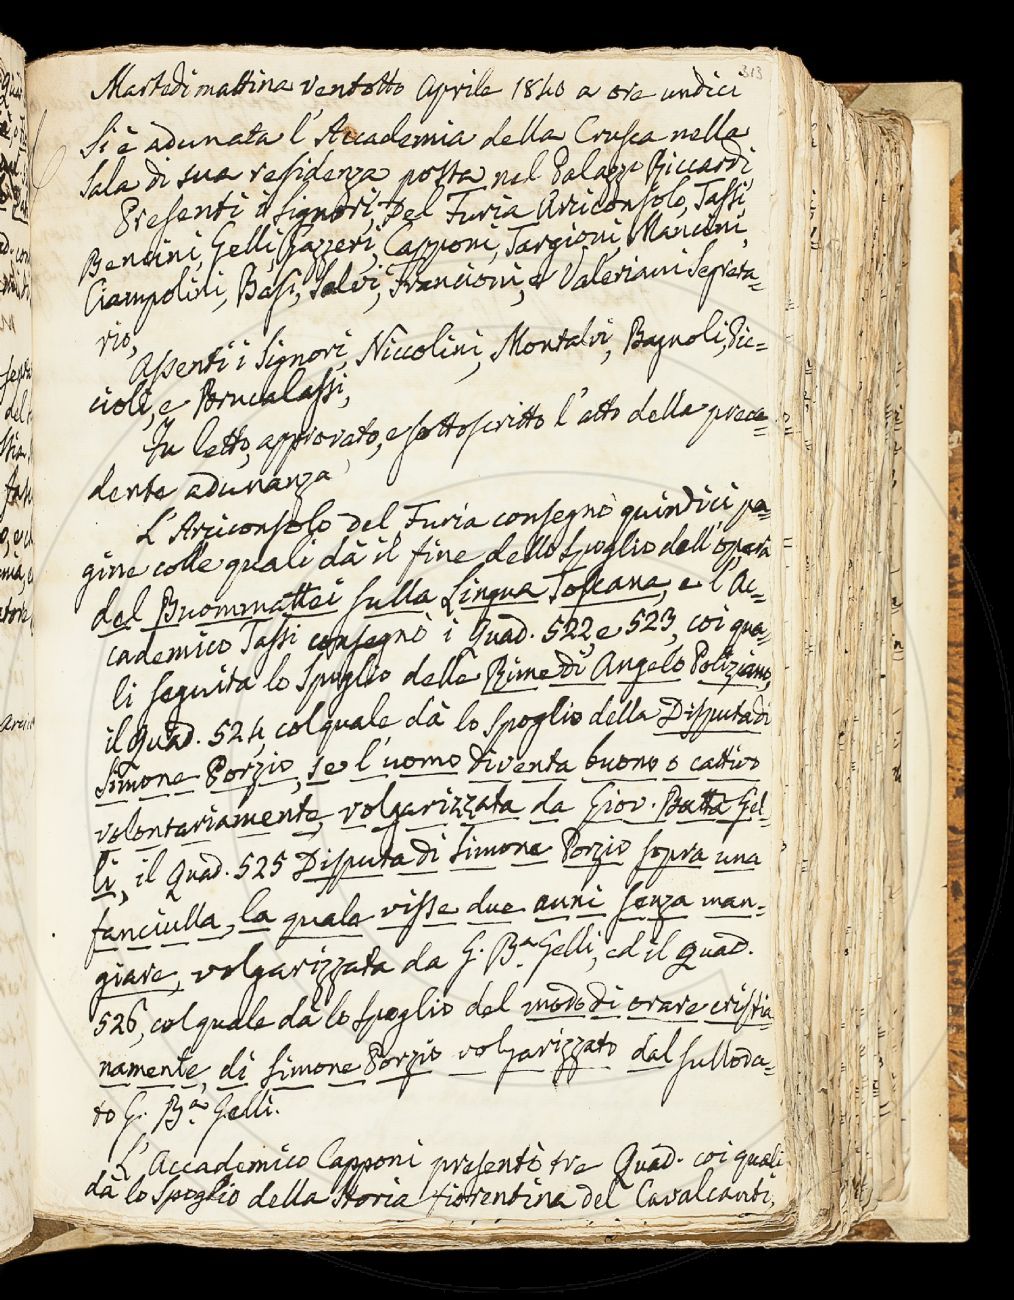 313
Martedì mattina ventotto Aprile 1840 a ore undici
Si è adunata l'Accademia della Crusca nella
Sala di sua residenza posta nel Palazzo Riccardi,
Presenti i Signori, Del Furia Arciconsolo, Tassi,
Bencini, Gelli, Gazzeri, Capponi, Targioni, Mancini,
Ciampolini, Basi, Salvi, Francioni, e Valeriani Segreta=
rio,
Assenti i Signori, Niccolini, Montalvi, Bagnoli, Pic=
cioli, e Brucalassi,
Fu letto, approvato, e sottoscritto l'atto della prece=
dente adunanza
L'Arciconsolo del Furia consegnò quindici pa=
gine colle quali dà il fine dello spoglio dell'opera
del Buommattei sulla Lingua Toscana, e l'Ac=
cademico Tassi consegnò i Quad. 522 e 523, coi qua=
li seguita lo Spoglio delle Rime di Angelo Poliziano,
il Quad. 524, col quale dà lo spoglio della Disputa di
Simone Porzio, se l'uomo diventa buono o cattivo
volontariamente, volgarizzata da Giov. Batta Gel=
li, il Quad. 525 Disputa di Simone Porzio sopra una
fanciulla, la quale visse due anni senza man=
giare, volgarizzata da G. Ba Gelli, ed il Quad.
526, col quale dà lo spoglio del modo di orare cristia
namente, di Simone Porzio volgarizzato dal sulloda=
to G. Ba Gelli.
L'Accademico Capponi presentò tre Quad. coi quali
dà lo Spoglio della Storia fiorentina del Cavalcanti,